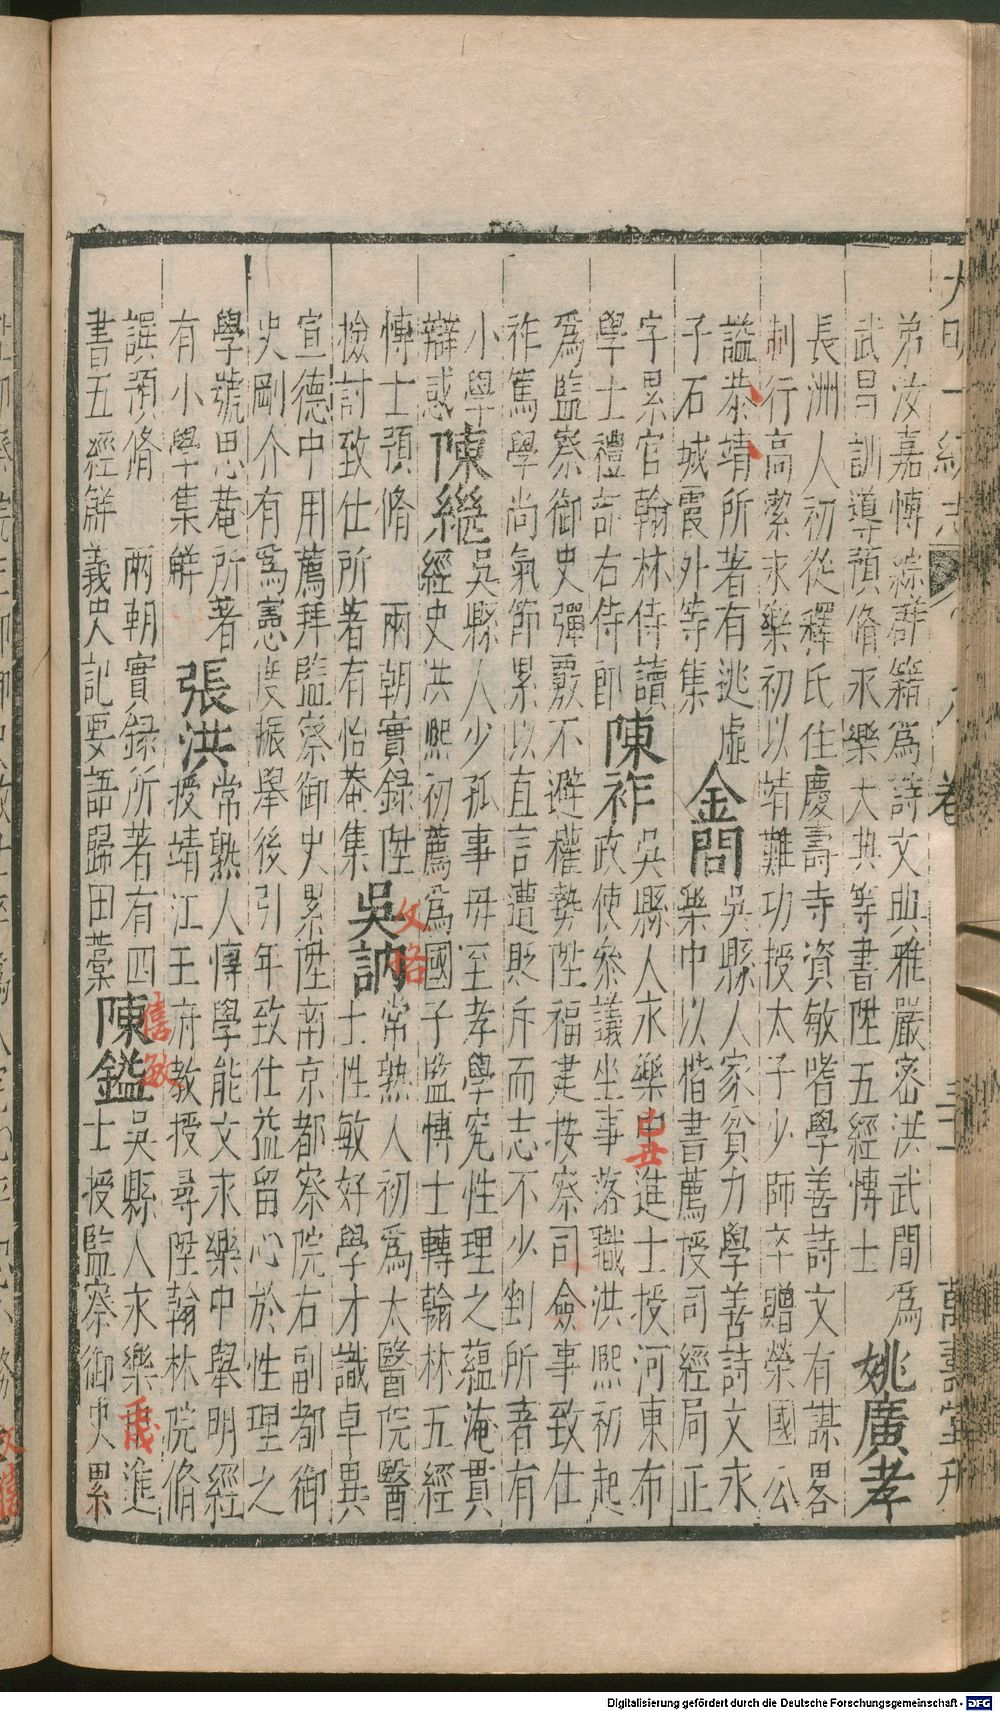 大明一統志 卷 萬壽堂刊
弟汝嘉博綜群籍為詩文典雅嚴密洪武間為
武昌訓導預脩永樂大典等書陞五經博士 姚廣孝
長洲人初從釋氏住慶壽寺資敏嗜學善詩文有謀畧
制行高潔永樂初以靖難功授太子少師卒贈榮國公
謚恭靖所著有逃虛
子石城霞外等集 金問 吳縣人家貧力學善詩文永
樂中以楷書薦授司經局正
字累官翰林侍讀
學士禮部右侍郎 陳祚 吳縣人永樂中進士授河東布
政使參議坐事落職洪熙初起
己丑
為監察御史彈覈不避權勢陞福建按察司僉事致仕
祚篤學尚氣節累以直言遭貶斥而志不少剉所著有
小學
辯惑 陳繼 吳縣人少孤事毋至孝學究性理之蘊淹貫
經史洪熙初薦為國子監博士轉翰林五經
博士預脩 兩朝實録陞
檢討致仕所著有怡菴集 吳訥 常熟人初為太醫院醫
士性敏好學才識卓異
文恪
宣德中用薦拜監察御史累陞南京都察院右副都御
史剛介有為憲度振舉後引年致仕益留心於性理之
學號思菴所著
有小學集解 張洪 常熟人博學能文永樂中舉明經
授靖江王府教授尋陞翰林院脩
譔預脩 兩朝實録所著有四
書五經解義史記要語歸田藁 陳鎰 吳縣人永樂進
士授監察御史累
僖敏